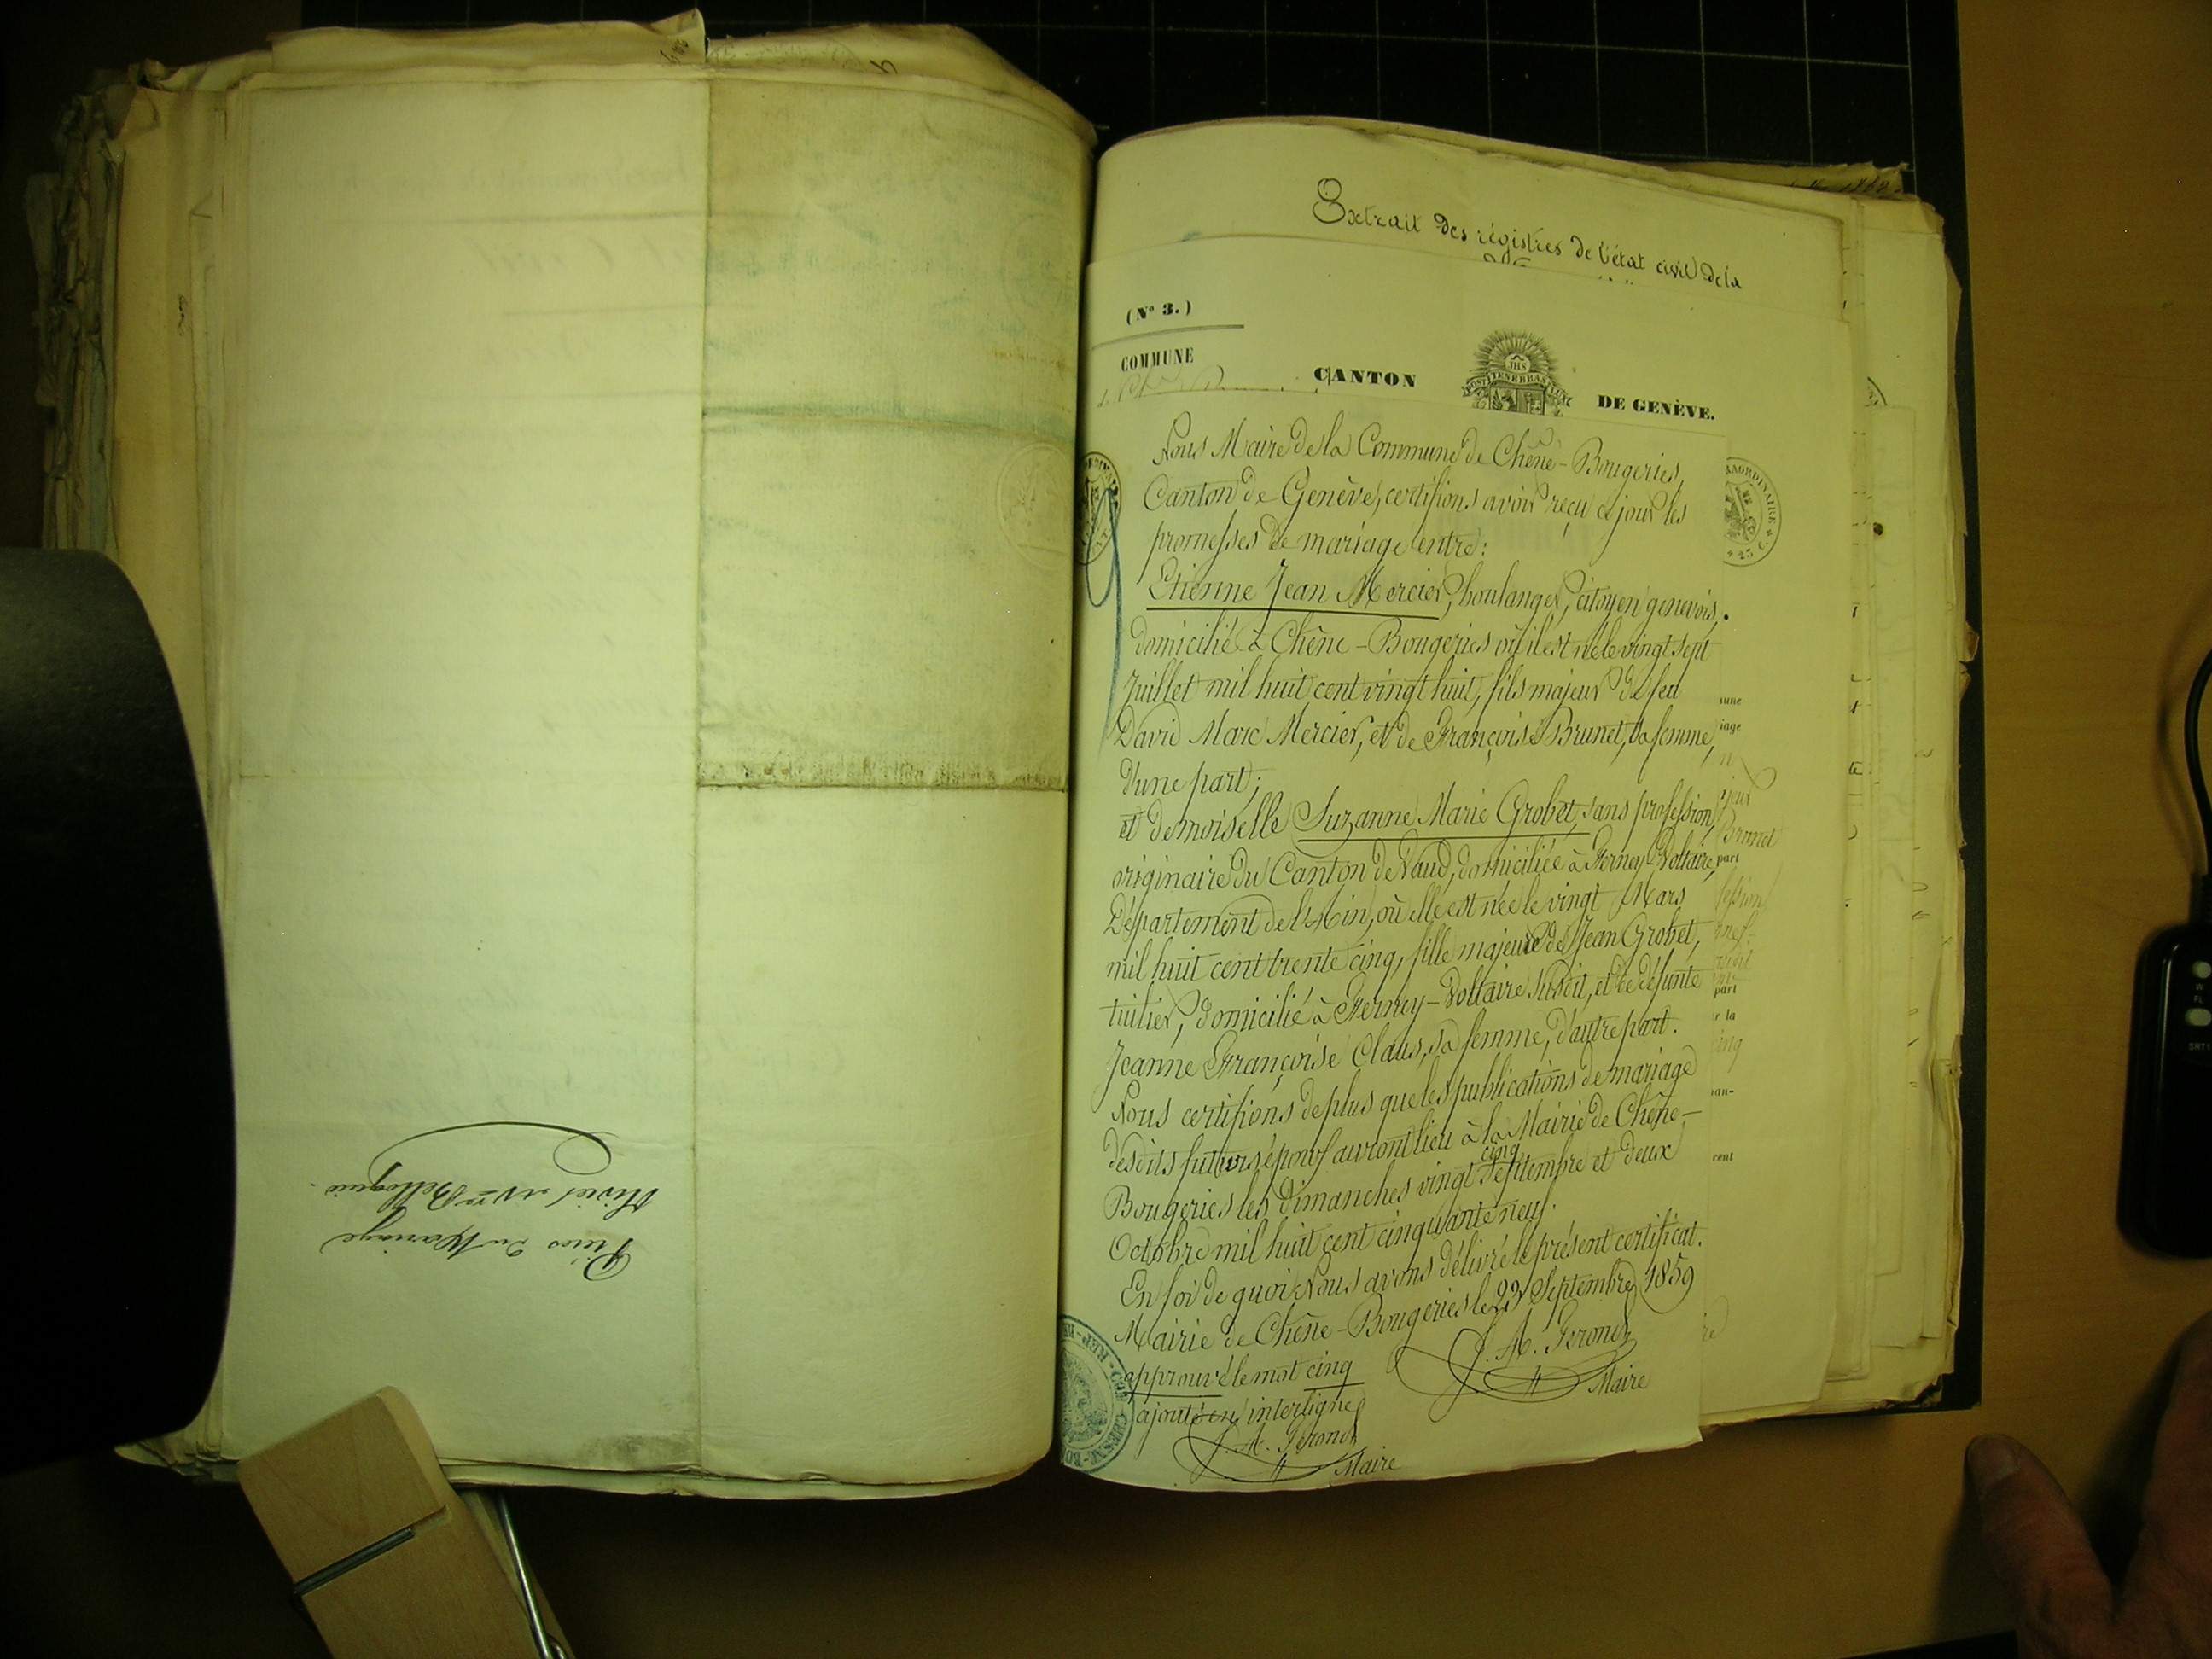 Extrait des régistres de l'état civil de la
(N° 3.)
COMMUNE
CANTON DE GENÈVE.
POST TENEBRAS LUX
JHS
Nous Maire de la Commune de Chêne-Bougeries,
Canton de Genève, certifions avoir reçu ce jour les
promesses de mariage entre:
Etienne Jean Mercier, boulanger, citoyen genevois,
domicilié à Chêne-Bougeries où il est né le vingt sept
Juillet mil huit cent vingt huit, fils majeur de feu
David Marc Mercier, et de Françoise Brunet, sa femme,
d'une part;
et demoiselle Suzanne Marie Grobet, sans profession,
originaire du Canton de Vaud, domiciliée à Ferney-Voltaire,
Département de l'Ain, où elle est née le vingt Mars
mil huit cent trente cinq, fille majeure de Jean Grobet,
tuilier, domicilié à Ferney-Voltaire susdit, et de défunte
Jeanne Françoise Claus, sa femme, d'autre part.
Nous certifions de plus que les publications de mariage
desdits futurs époux auront lieu à la Mairie de Chêne-
Bougeries les Dimanches vingt cinq Septembre et deux
Octobre mil huit cent cinquante neuf.
En foi de quoi Nous avons délivré le présent certificat.
Mairie de Chêne-Bougeries le 23 Septembre 1859
approuvé le mot cinq
ajouté en interligne
Maire
Maire
Pièces du Mariage